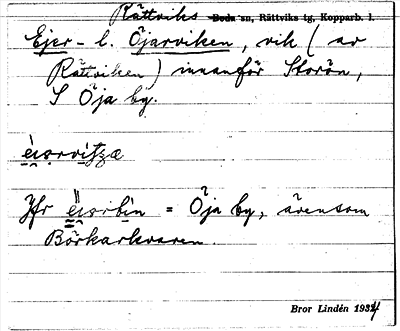 Rättviks Boda sn, Rättviks tg, Kopparb. l.
Ejer- l. Öjarviken, vik (av
Rättviken) innanför Storön,
S Öja by.
Jfr = Öja by, ävensom
Börkarkvaren.
Bror Lindén 1934